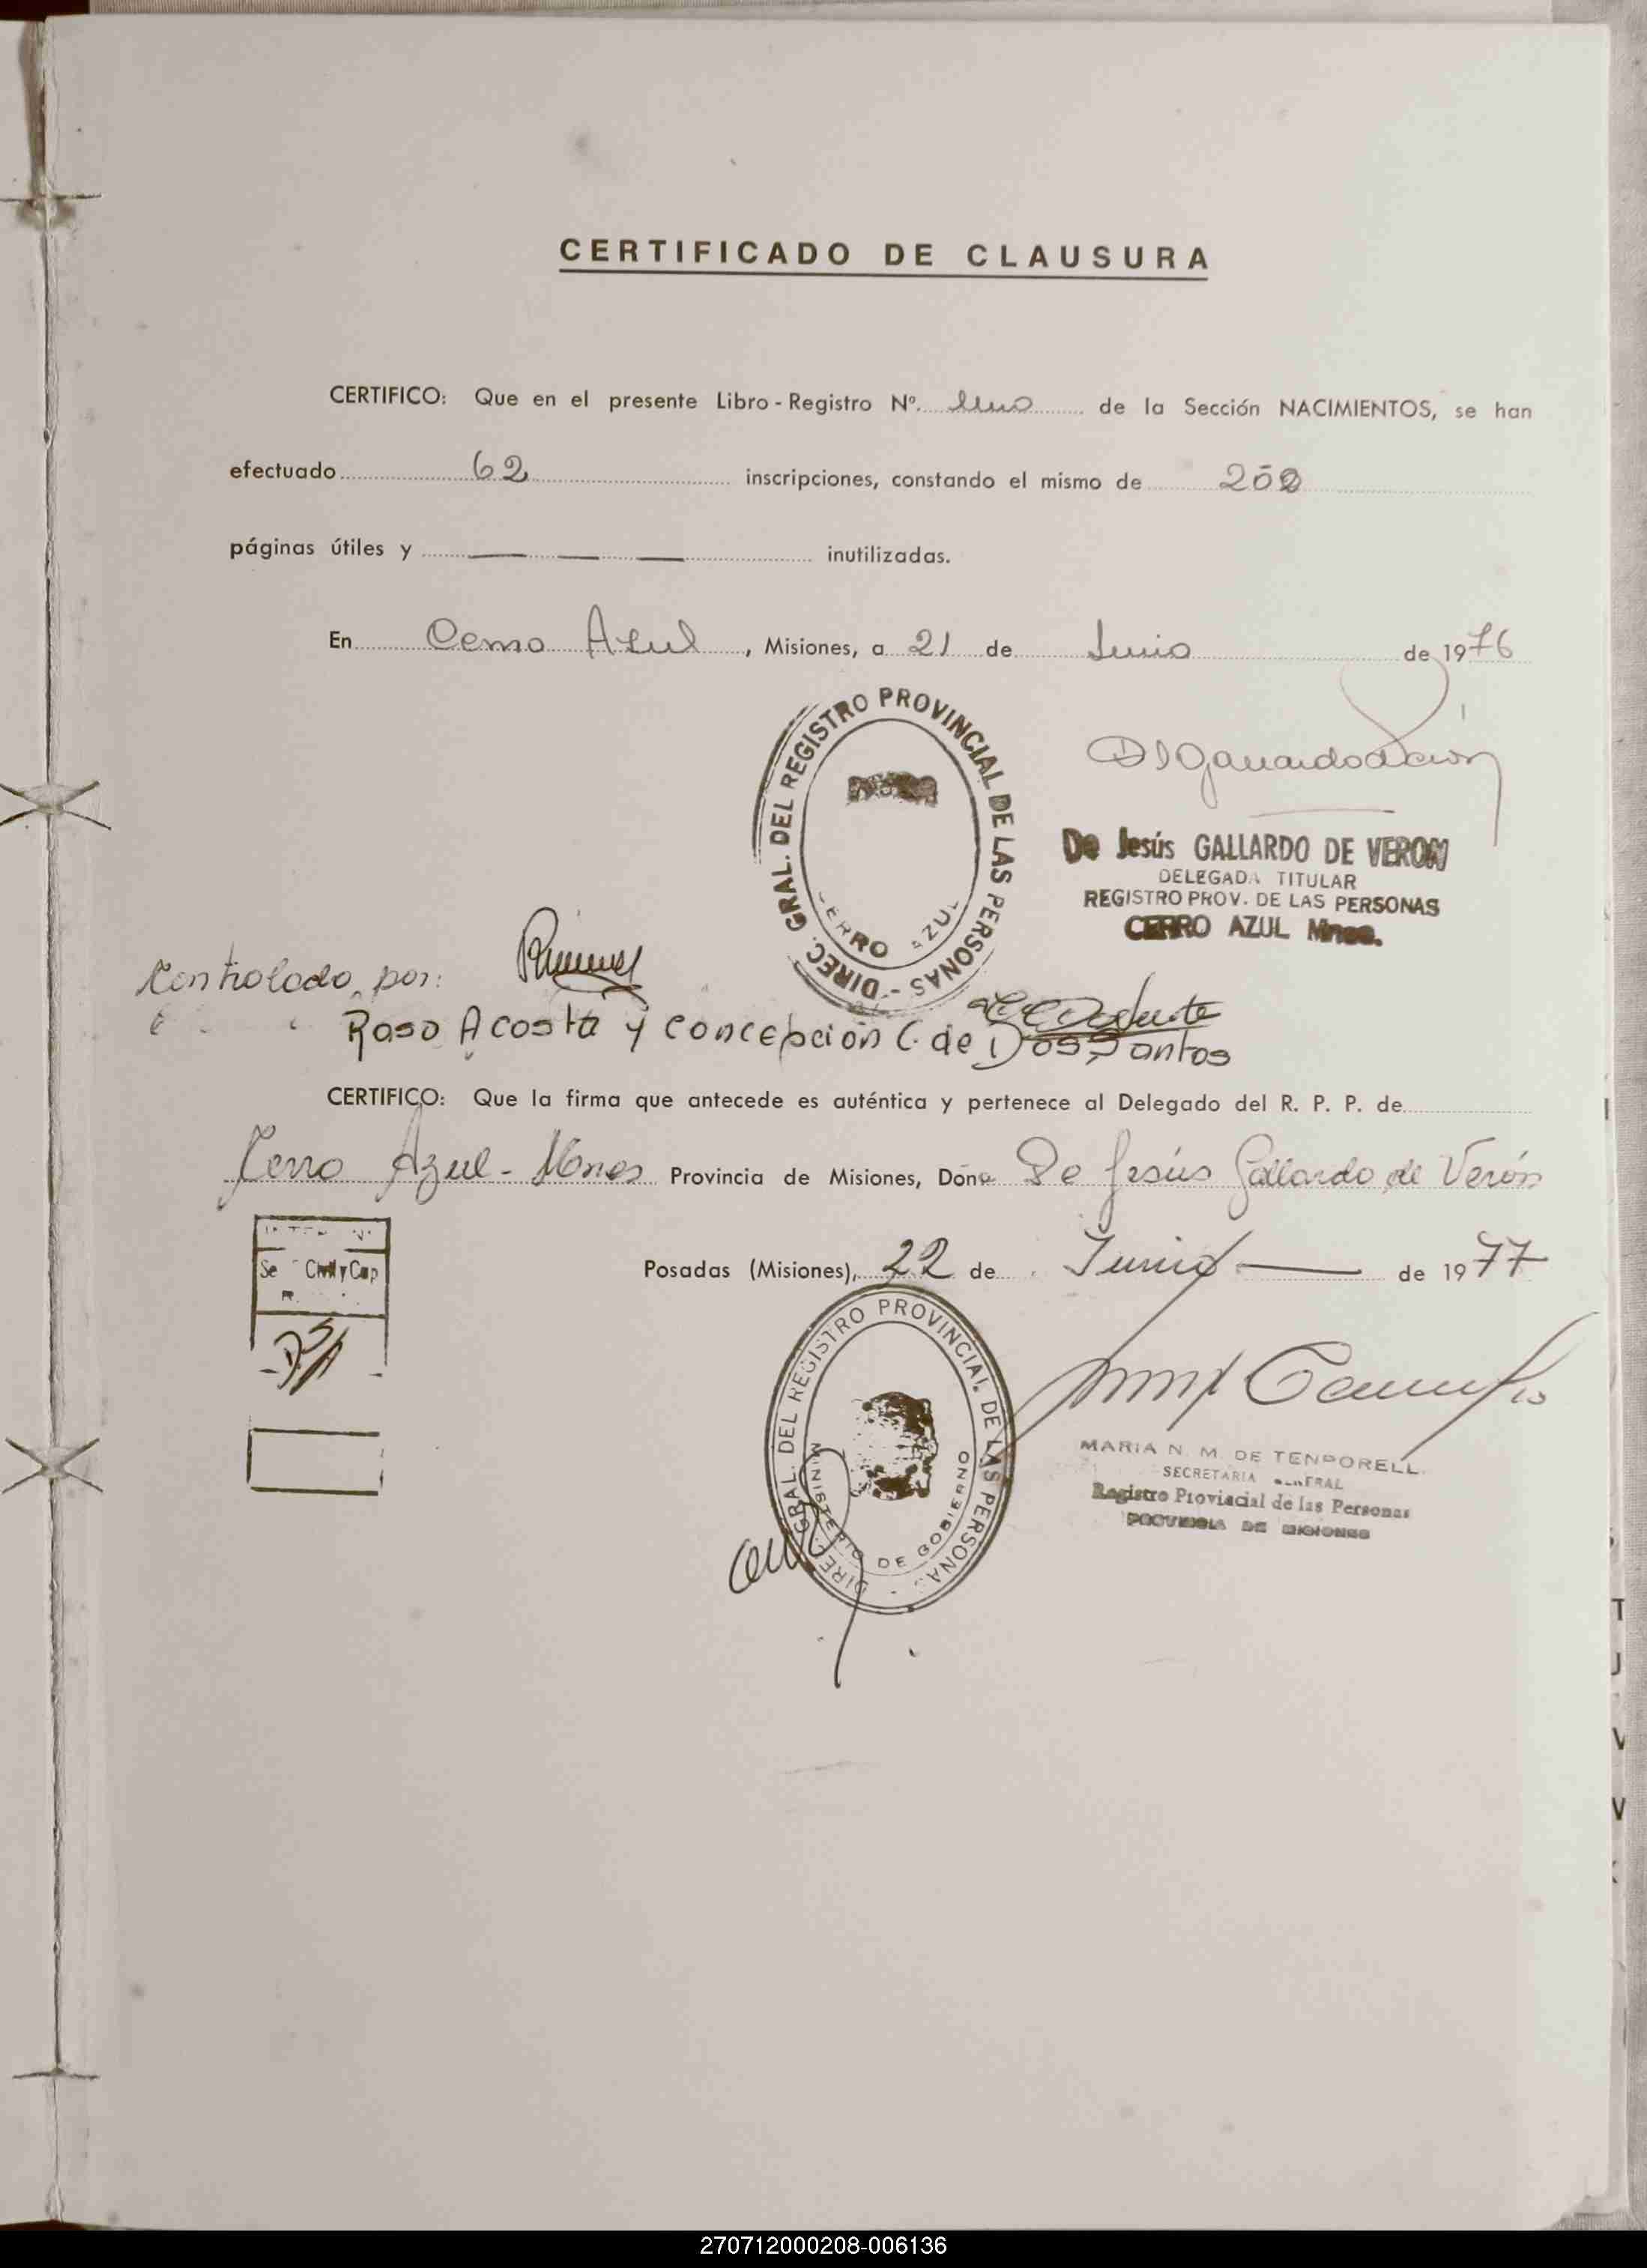 CERTIFICADO DE CLAUSURA
CERTIFICO: Que en el presente Libro-Registro Nº. Uno de la Sección NACIMIENTOS, se han
efectuado 62 inscripciones, constando el mismo de
páginas útiles y inutilizadas.
En Cerro Azul, Misiones, a 21 de Junio de 1976
DIREC. GRAL. DEL REGISTRO PROVINCIAL DE LAS PERSONAS -
CERRO AZUL
De Jesús GALLARDO DE VERON
DELEGADA TITULAR
REGISTRO PROV. DE LAS PERSONAS
CERRO AZUL Mnes.
Controlado por:
Raso Acosta y Concepción C. de Dos Santos
CERTIFICO: Que la firma que antecede es auténtica y pertenece al Delegado del R. P. P. de
Cerro Azul - Mnes Provincia de Misiones, Doña De Jesús Gallardo de Verón
Civil y Cap
Posadas (Misiones), 22 de Junio de 1977
DIREC. GRAL. DEL REGISTRO PROVINCIAL DE LAS PERSONAS -
MINISTERIO DE GOBIERNO
MARIA N. M. DE TENPORELLI
SECRETARIA GENERAL
Registro Provincial de las Personas
PROVINCIA DE MISIONES
T
J
V
V
270712000208-006136